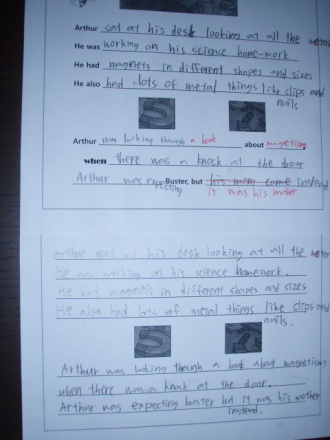 Arthur sat at his desk looking at all the
He was working on his science home-work
He had magnets in different shapes and sizes
He also had lots of metal things like clips and
nails
Arthur was looking though a book about magnetism.
when there was a knock at the door
Arthur was expecting Buster, but his mom came instead
it was his mother
Arthur sat at his desk looking at all the
He was working on his science homework.
He had magnets in different shapes and sizes
He also had lots of metal things like clips and
nails.
Arthur was looking though a book about magnetism
when there was a knock at the door.
Arthur was expecting buster but it was his mother
instead.